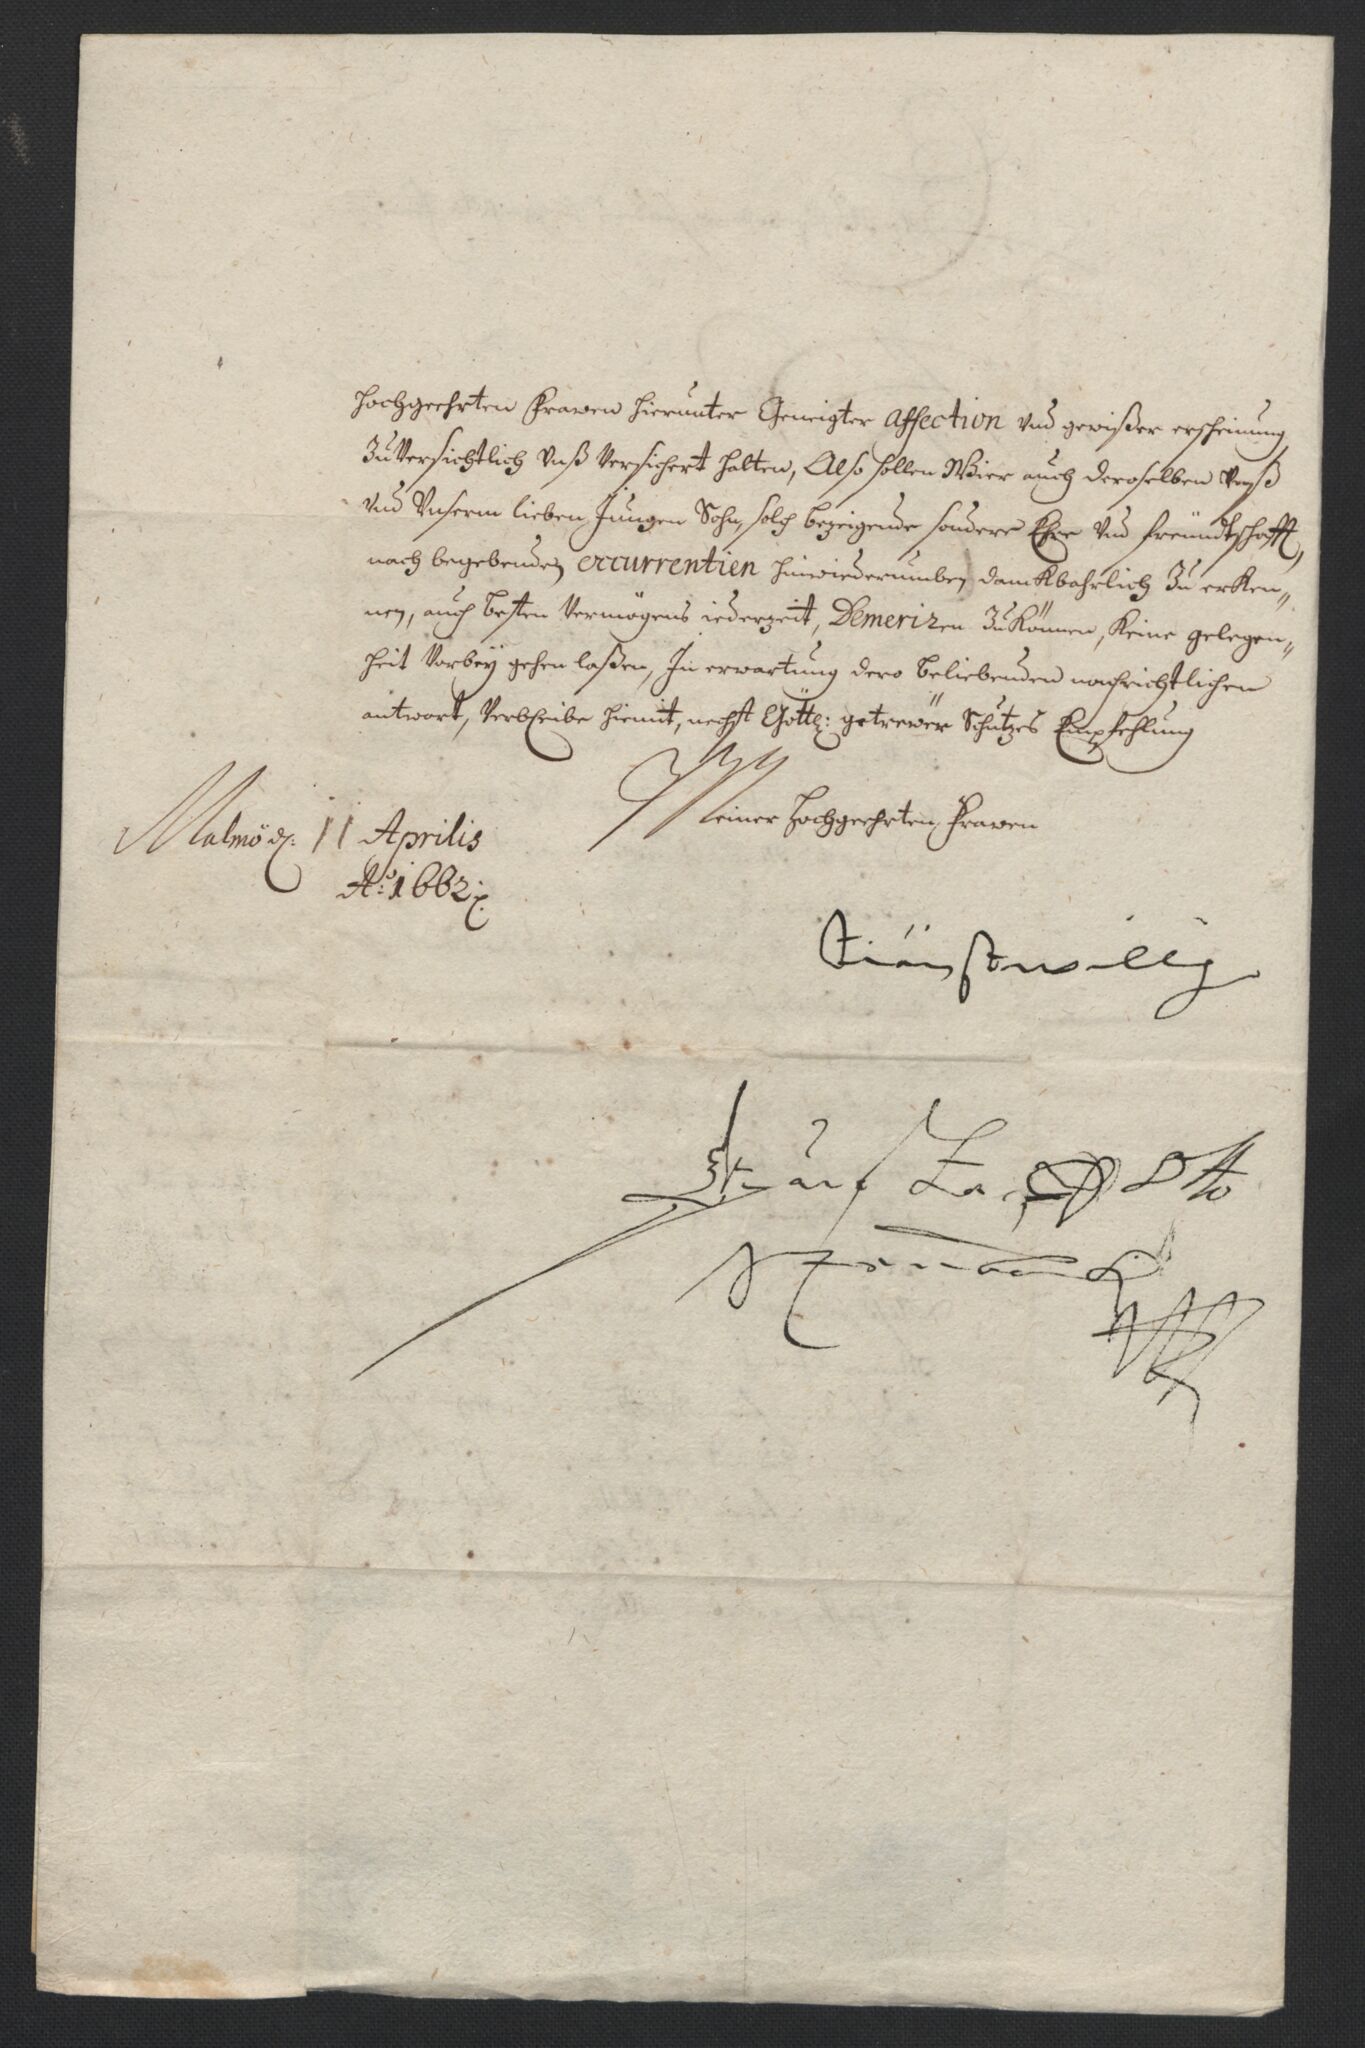 hochgeehrten Frawen hierunter Geneigter affection vnd gewißer erscheinung
zuVersichtlich vnß Versichert halten, Also sollen Wier auch deroselben vnß
vnd Vnserm lieben Jungen Sohn, solch bezeigende sondere Ehre vnd freündtschafft,
nach begebenden occurrentien hinwiederumben danckbahrlich zu erken„
nen, auch besten Vermögens iederzeit, Demerizen zu können, keine gelegen„
heit Vorbeÿ gehen laßen, In erwartung dero beliebenden nachrichtlichen
antwort, Verbleibe hiemit, nechst Göttl: getrewer Schützes Empfehlung
Meiner Hochgeehrten Frawen
Malmö d. 11 Aprilis
Ao: 1662
dienstwillig
Otto